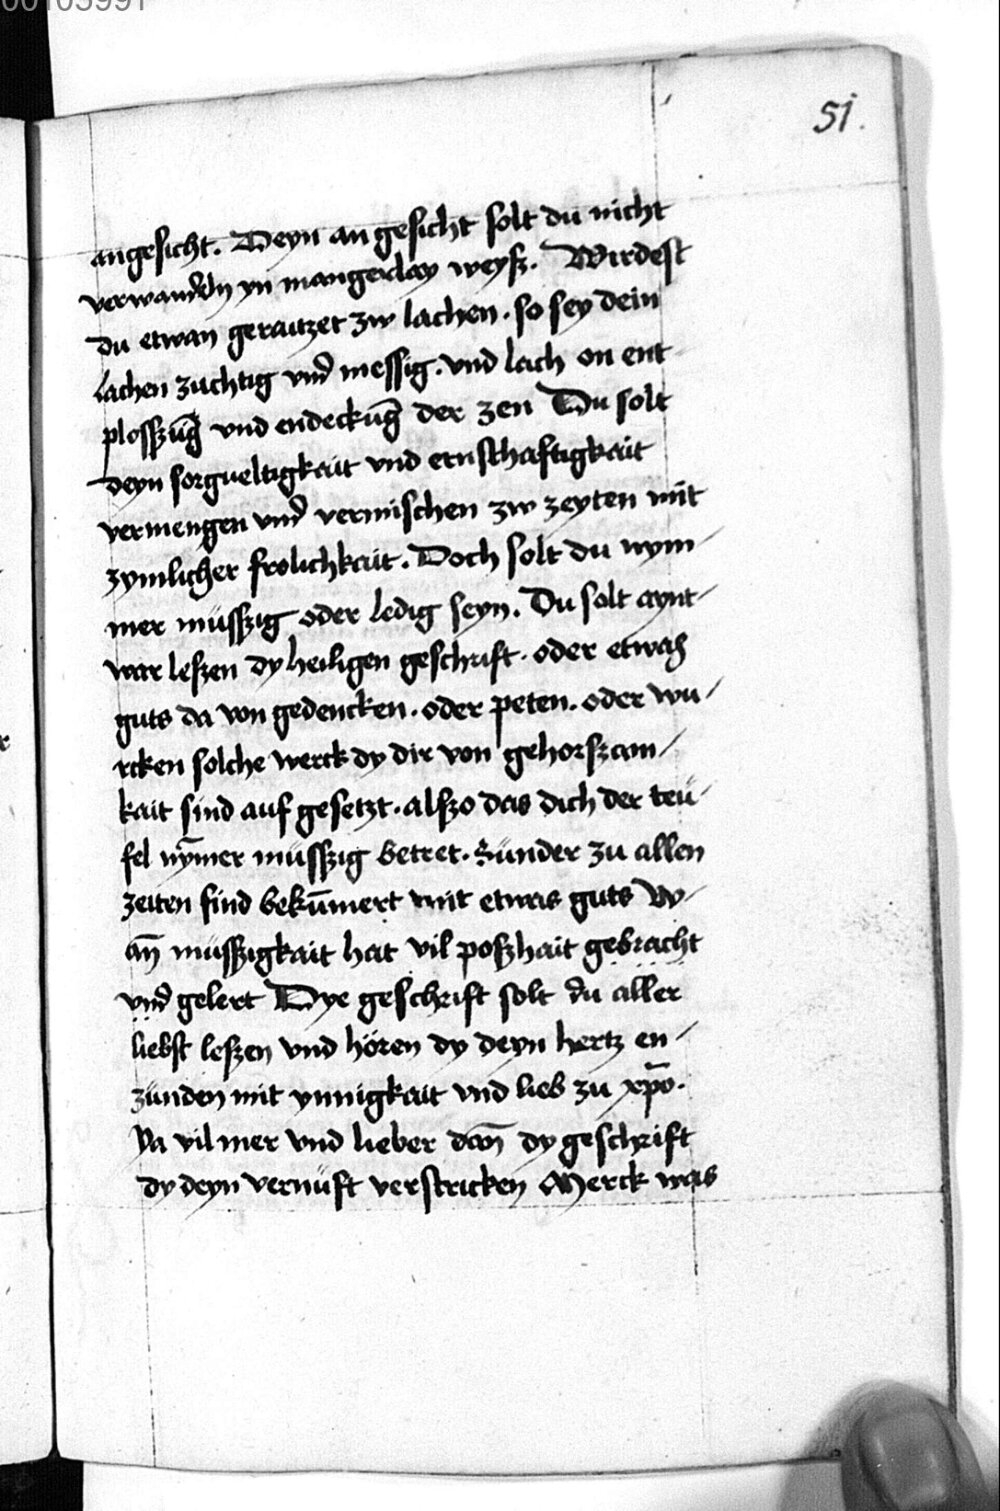 00103991
51.
angesicht. Deyn an gesicht solt du nicht
verwandeln yn mangerlay weysz. Wirdest
du etwan geraitzet zw lachen. so sey dein
lachen zuchtig vnd messig. vnd lach on ent
plosszūg vnd endeckūg der zen Du solt
deyn sorgueltigkait vnd ernschaftigkait
vermengen vnd vermischen zw zeyten mit
zymlicher frolichkait. Doch solt du nym/
mer müsszig oder ledig seyn. Du solt aynt/
war leszen dy heiligen geschrift. oder etwas
guts da von gedencken. oder peten. oder wu/
rcken solche werck dy dir von gehorszam/
kait sind auf gesetzt. alszo das dich der teü/
fel nȳmer müsszig betret. Sünder zu allen
zeiten sind bekūmert mit etwas guts W/
an̄ müsszigkait hat vil poszhait gebracht
vnd gelert Dye geschrift solt du aller
liebst leszen vnd hören dy deyn hertz en/
zünden mit ynnigkait vnd lieb zu xp̄o.
Ya vil mer vnd lieber dan̄ dy geschrift
dy deyn vernüft verstricken Merck was